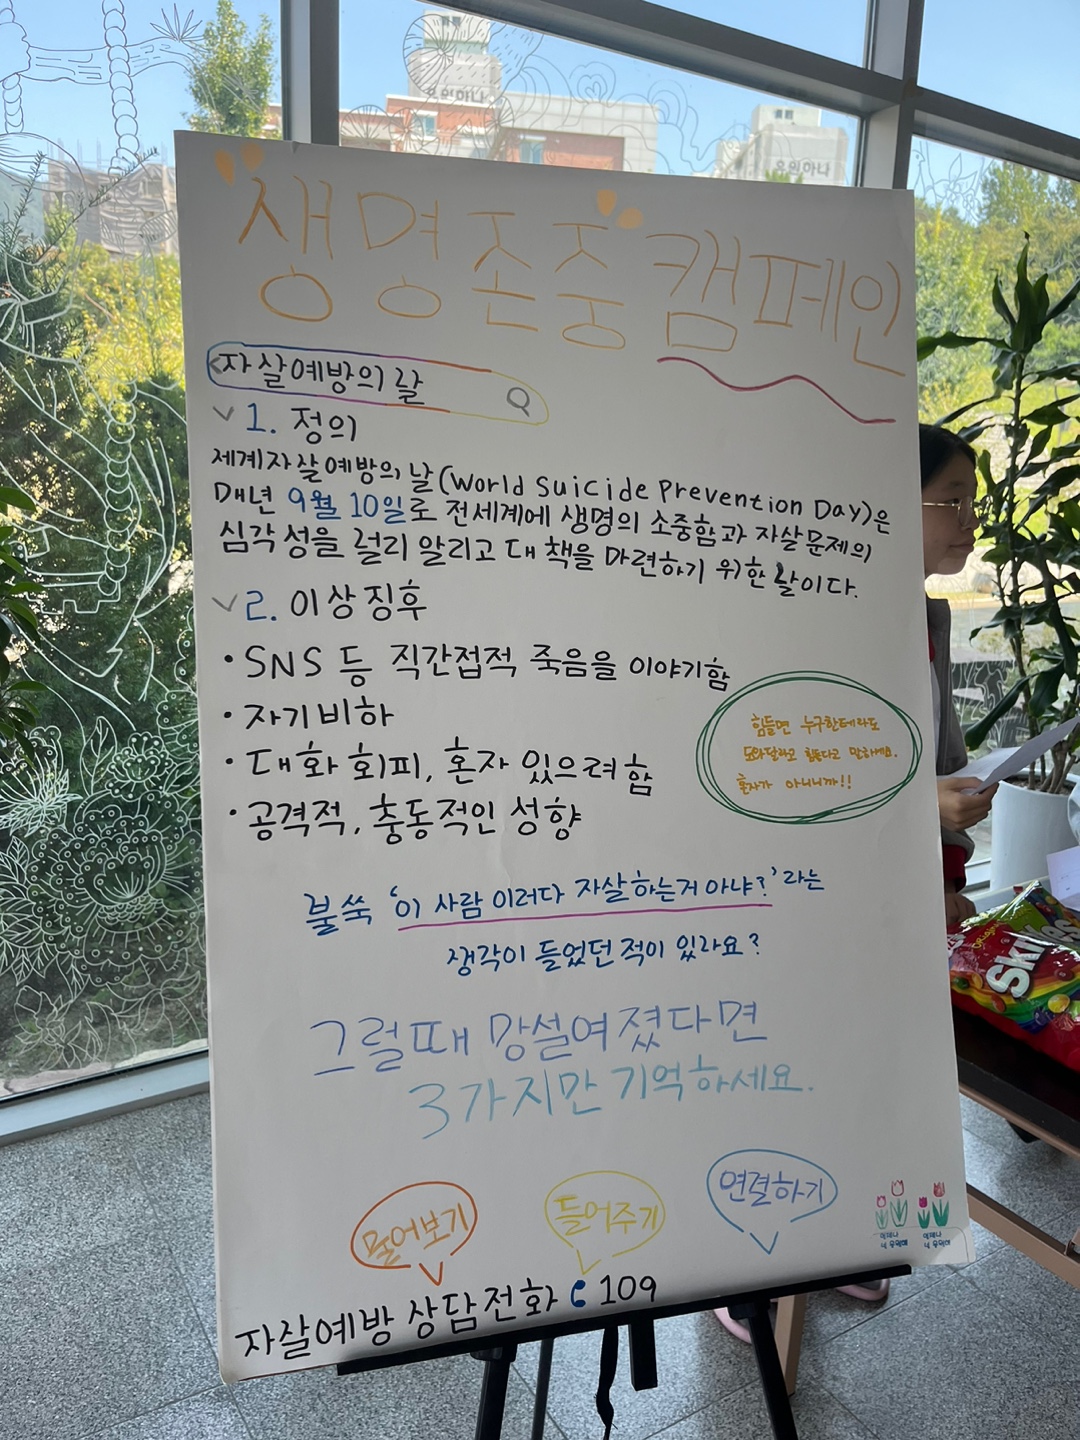 생명존중캠페인
자살예방의 날
1. 정의
세계자살예방의 날(World Suicide Prevention Day)은
매년 9월 10일로 전세계에 생명의 소중함과 자살문제의
심각성을 널리 알리고 대책을 마련하기 위한 날이다.
2. 이상징후
• SNS 등 직간접적 죽음을 이야기함
• 자기비하
• 대화 회피, 혼자 있으려 함
• 공격적, 충동적인 성향
힘들면 누구한테라도
도와달라고 힘들다고 말하세요.
혼자가 아니니까!!
불쑥 '이 사람 이러다 자살하는거 아냐?'라는
생각이 들었던 적이 있나요?
그럴때 망설여졌다면
3가지만 기억하세요.
물어보기
들어주기
연결하기
자살예방 상담전화 109
Skittles